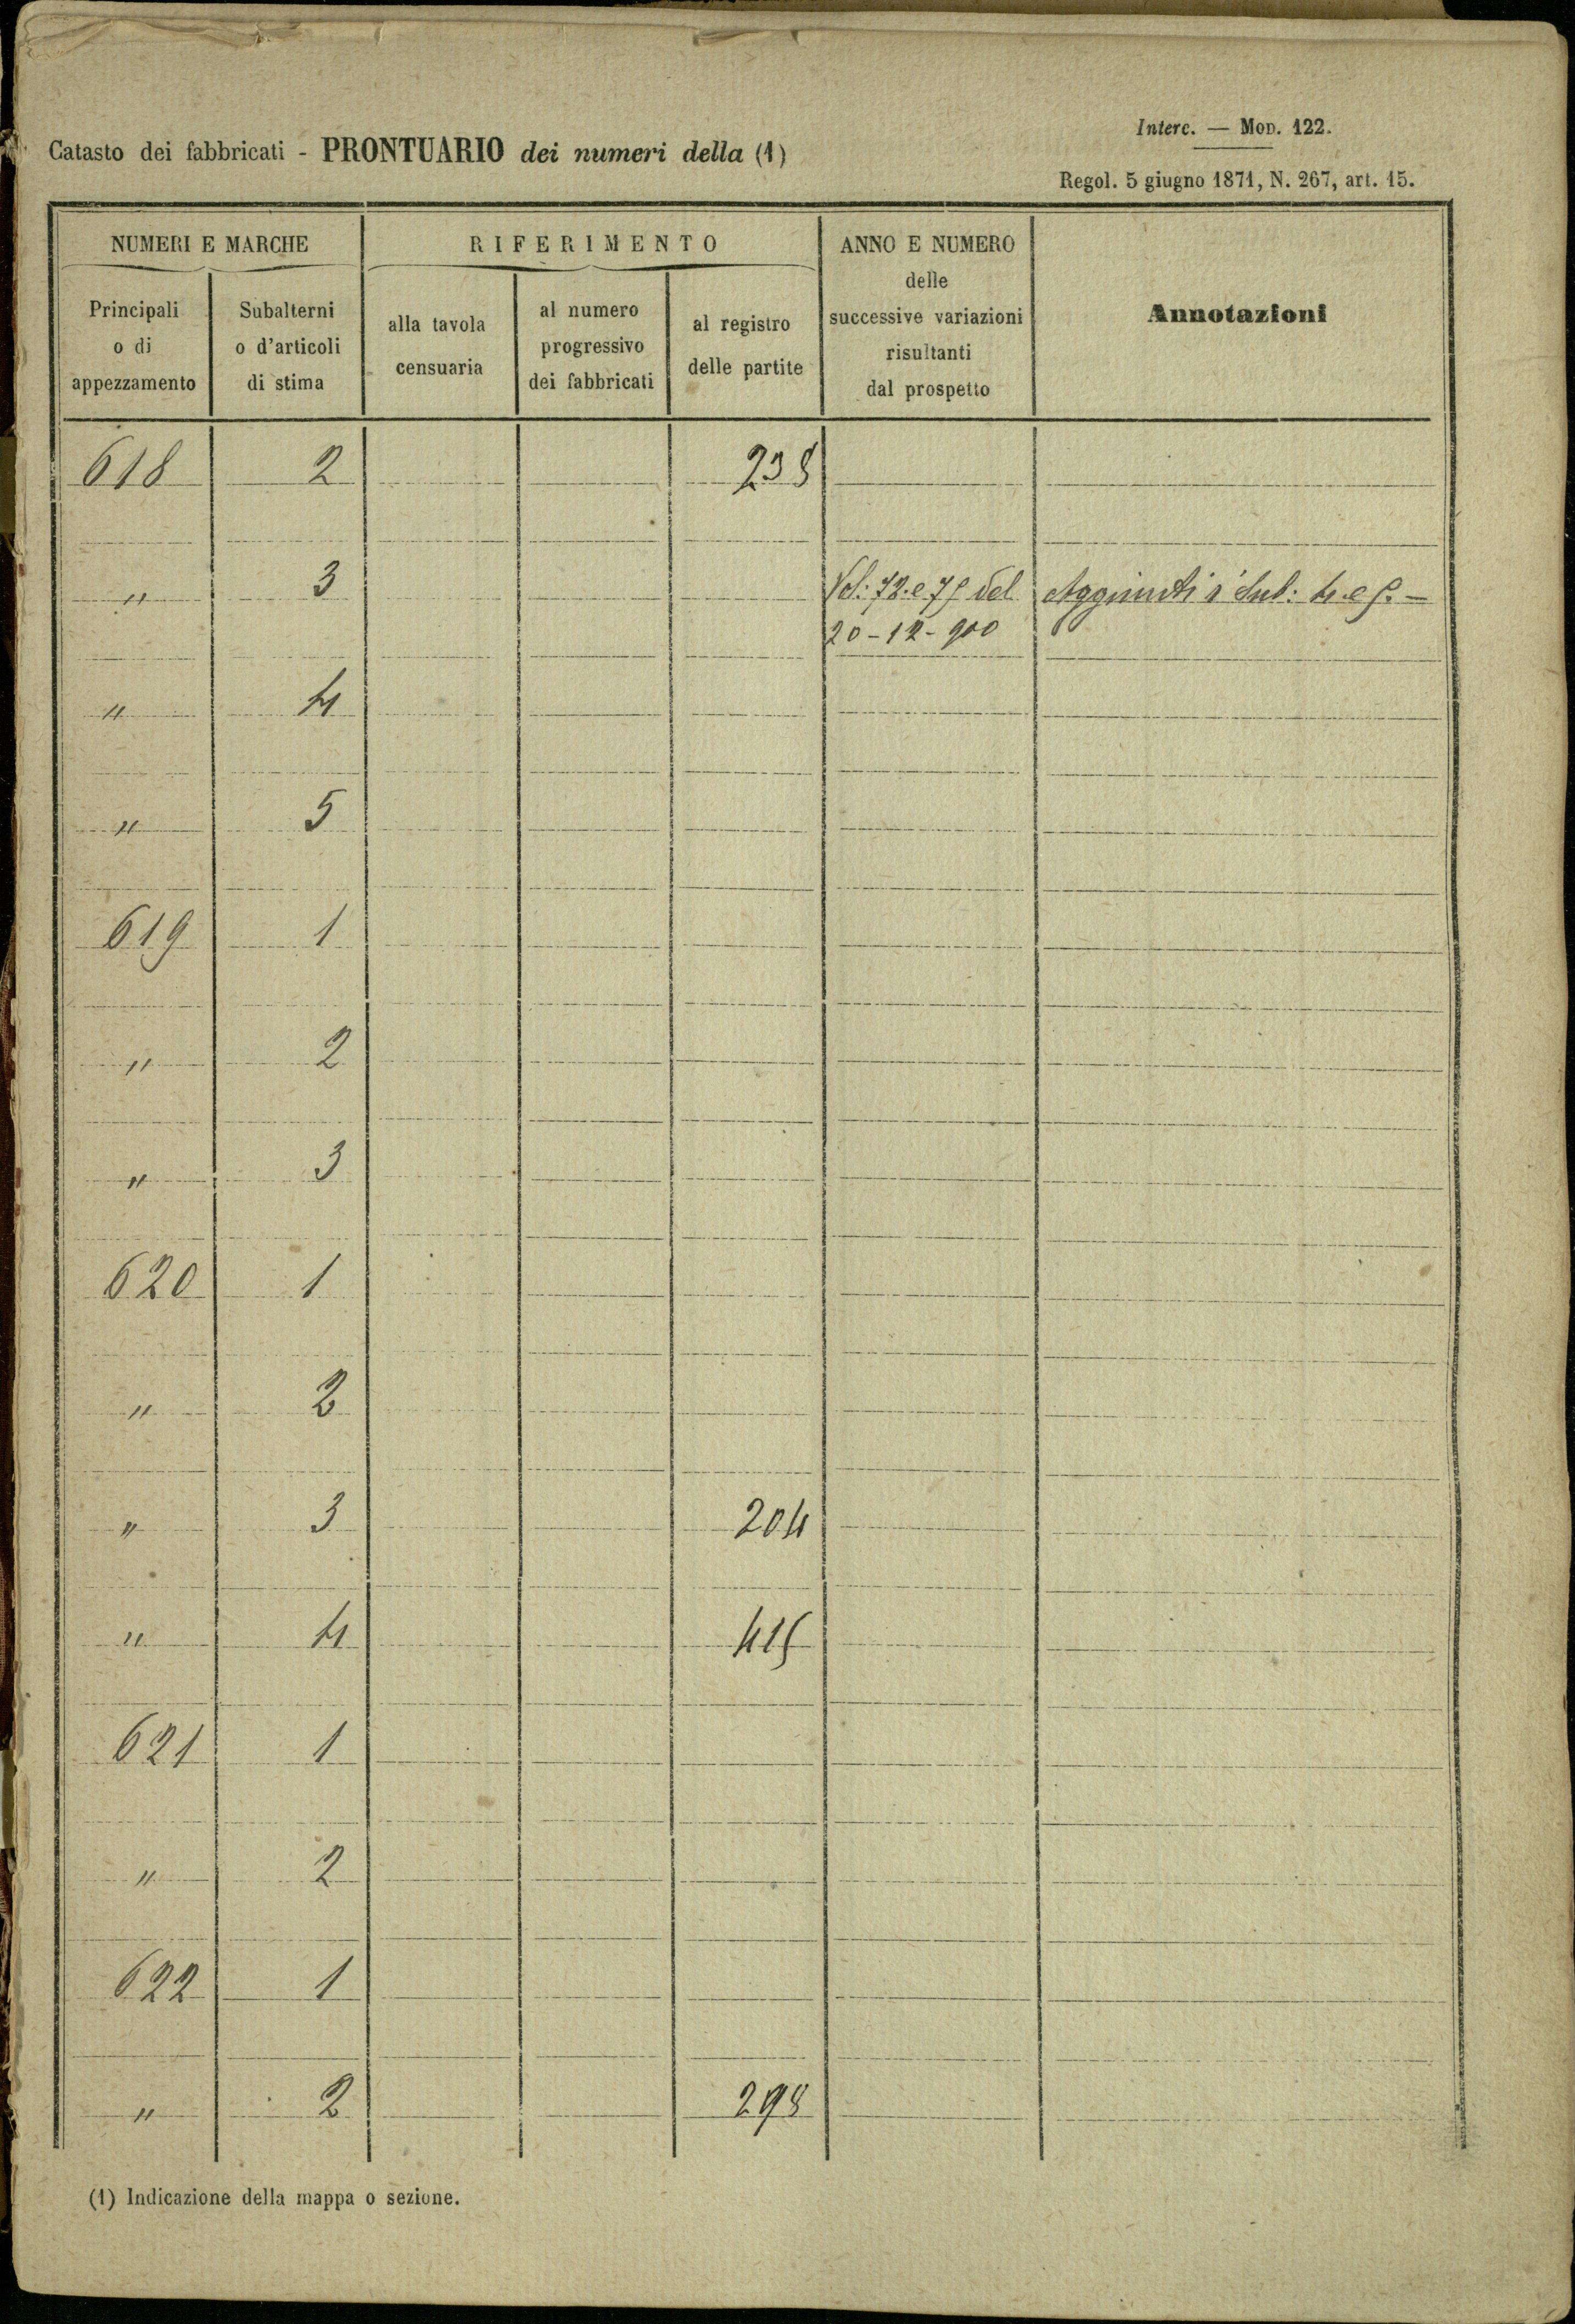 Interc. — Mod. 122.
Catasto dei fabbricati - PRONTUARIO dei numeri della (1)
Regol. 5 giugno 1871, N. 267, art. 15.
NUMERI E MARCHE
RIFERIMENTO
ANNO E NUMERO
delle
successive variazioni
risultanti
dal prospetto
Annotazioni
Principali
o di
appezzamento
Subalterni
o d'articoli
di stima
alla tavola
censuaria
al numero
progressivo
dei fabbricati
al registro
delle partite
618 2 238
" 3 Vol: 72. e 75 del Aggiunti i Sub: 4. e 5. —
20-12-900
" 4
" 5
619 1
" 2
" 3
620 1
" 2
" 3 204
" 4 415
621 1
" 2
622 1
" 2 298
(1) Indicazione della mappa o sezione.